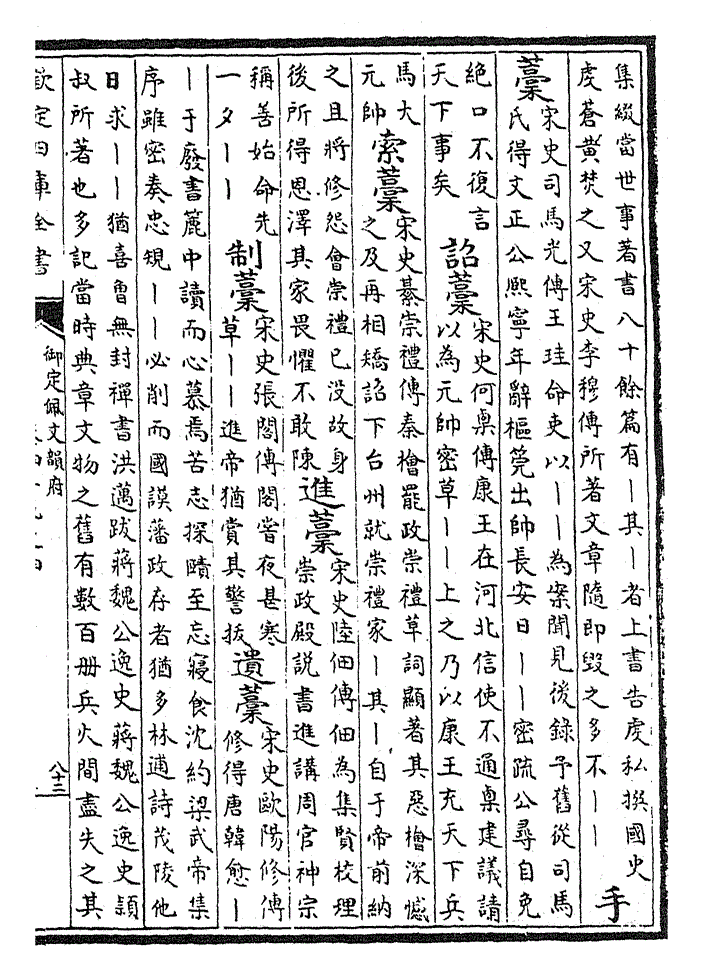 集綴當世事著書八十餘篇有｜其｜者上書告虔私撰國史
虔蒼黃焚之又宋史李穆傳所著文章隨即毁之多不｜｜
手
藁
宋史司馬光傳王珪命吏以｜｜為案聞見後錄予舊從司馬
氏得文正公熙寧年辭樞筦出帥長安日｜｜密疏公尋自免
絶口不復言
天下事矣
詔藁
宋史何㮚傳康王在河北信使不通㮚建議請
以為元帥密草｜｜上之乃以康王充天下兵
馬大
元帥
索藁
宋史綦崇禮傳秦檜罷政崇禮草詞顯著其惡檜深憾
之及再相矯詔下台州就崇禮家｜其｜自于帝前納
之且將修怨會崇禮已没故身
後所得恩澤其家畏懼不敢陳
進藁
宋史陸佃傳佃為集賢校理
崇政殿説書進講周官神宗
稱善始命先
一夕｜｜
制藁
宋史張閣傳閣嘗夜甚寒
草｜｜進帝猶賞其警拔
遺藁
宋史歐陽修傳
修得唐韓愈｜
｜于廢書簏中讀而心慕焉苦志探賾至忘寢食沈約梁武帝集
序雖密奏忠規｜｜必削而國謨藩政存者猶多林逋詩茂陵他
日求｜｜猶喜曾無封禪書洪邁跋蔣魏公逸史蔣魏公逸史頴
叔所著也多記當時典章文物之舊有數百册兵火間盡失之其
欽定四庫全書
御定佩文韻府
八十三